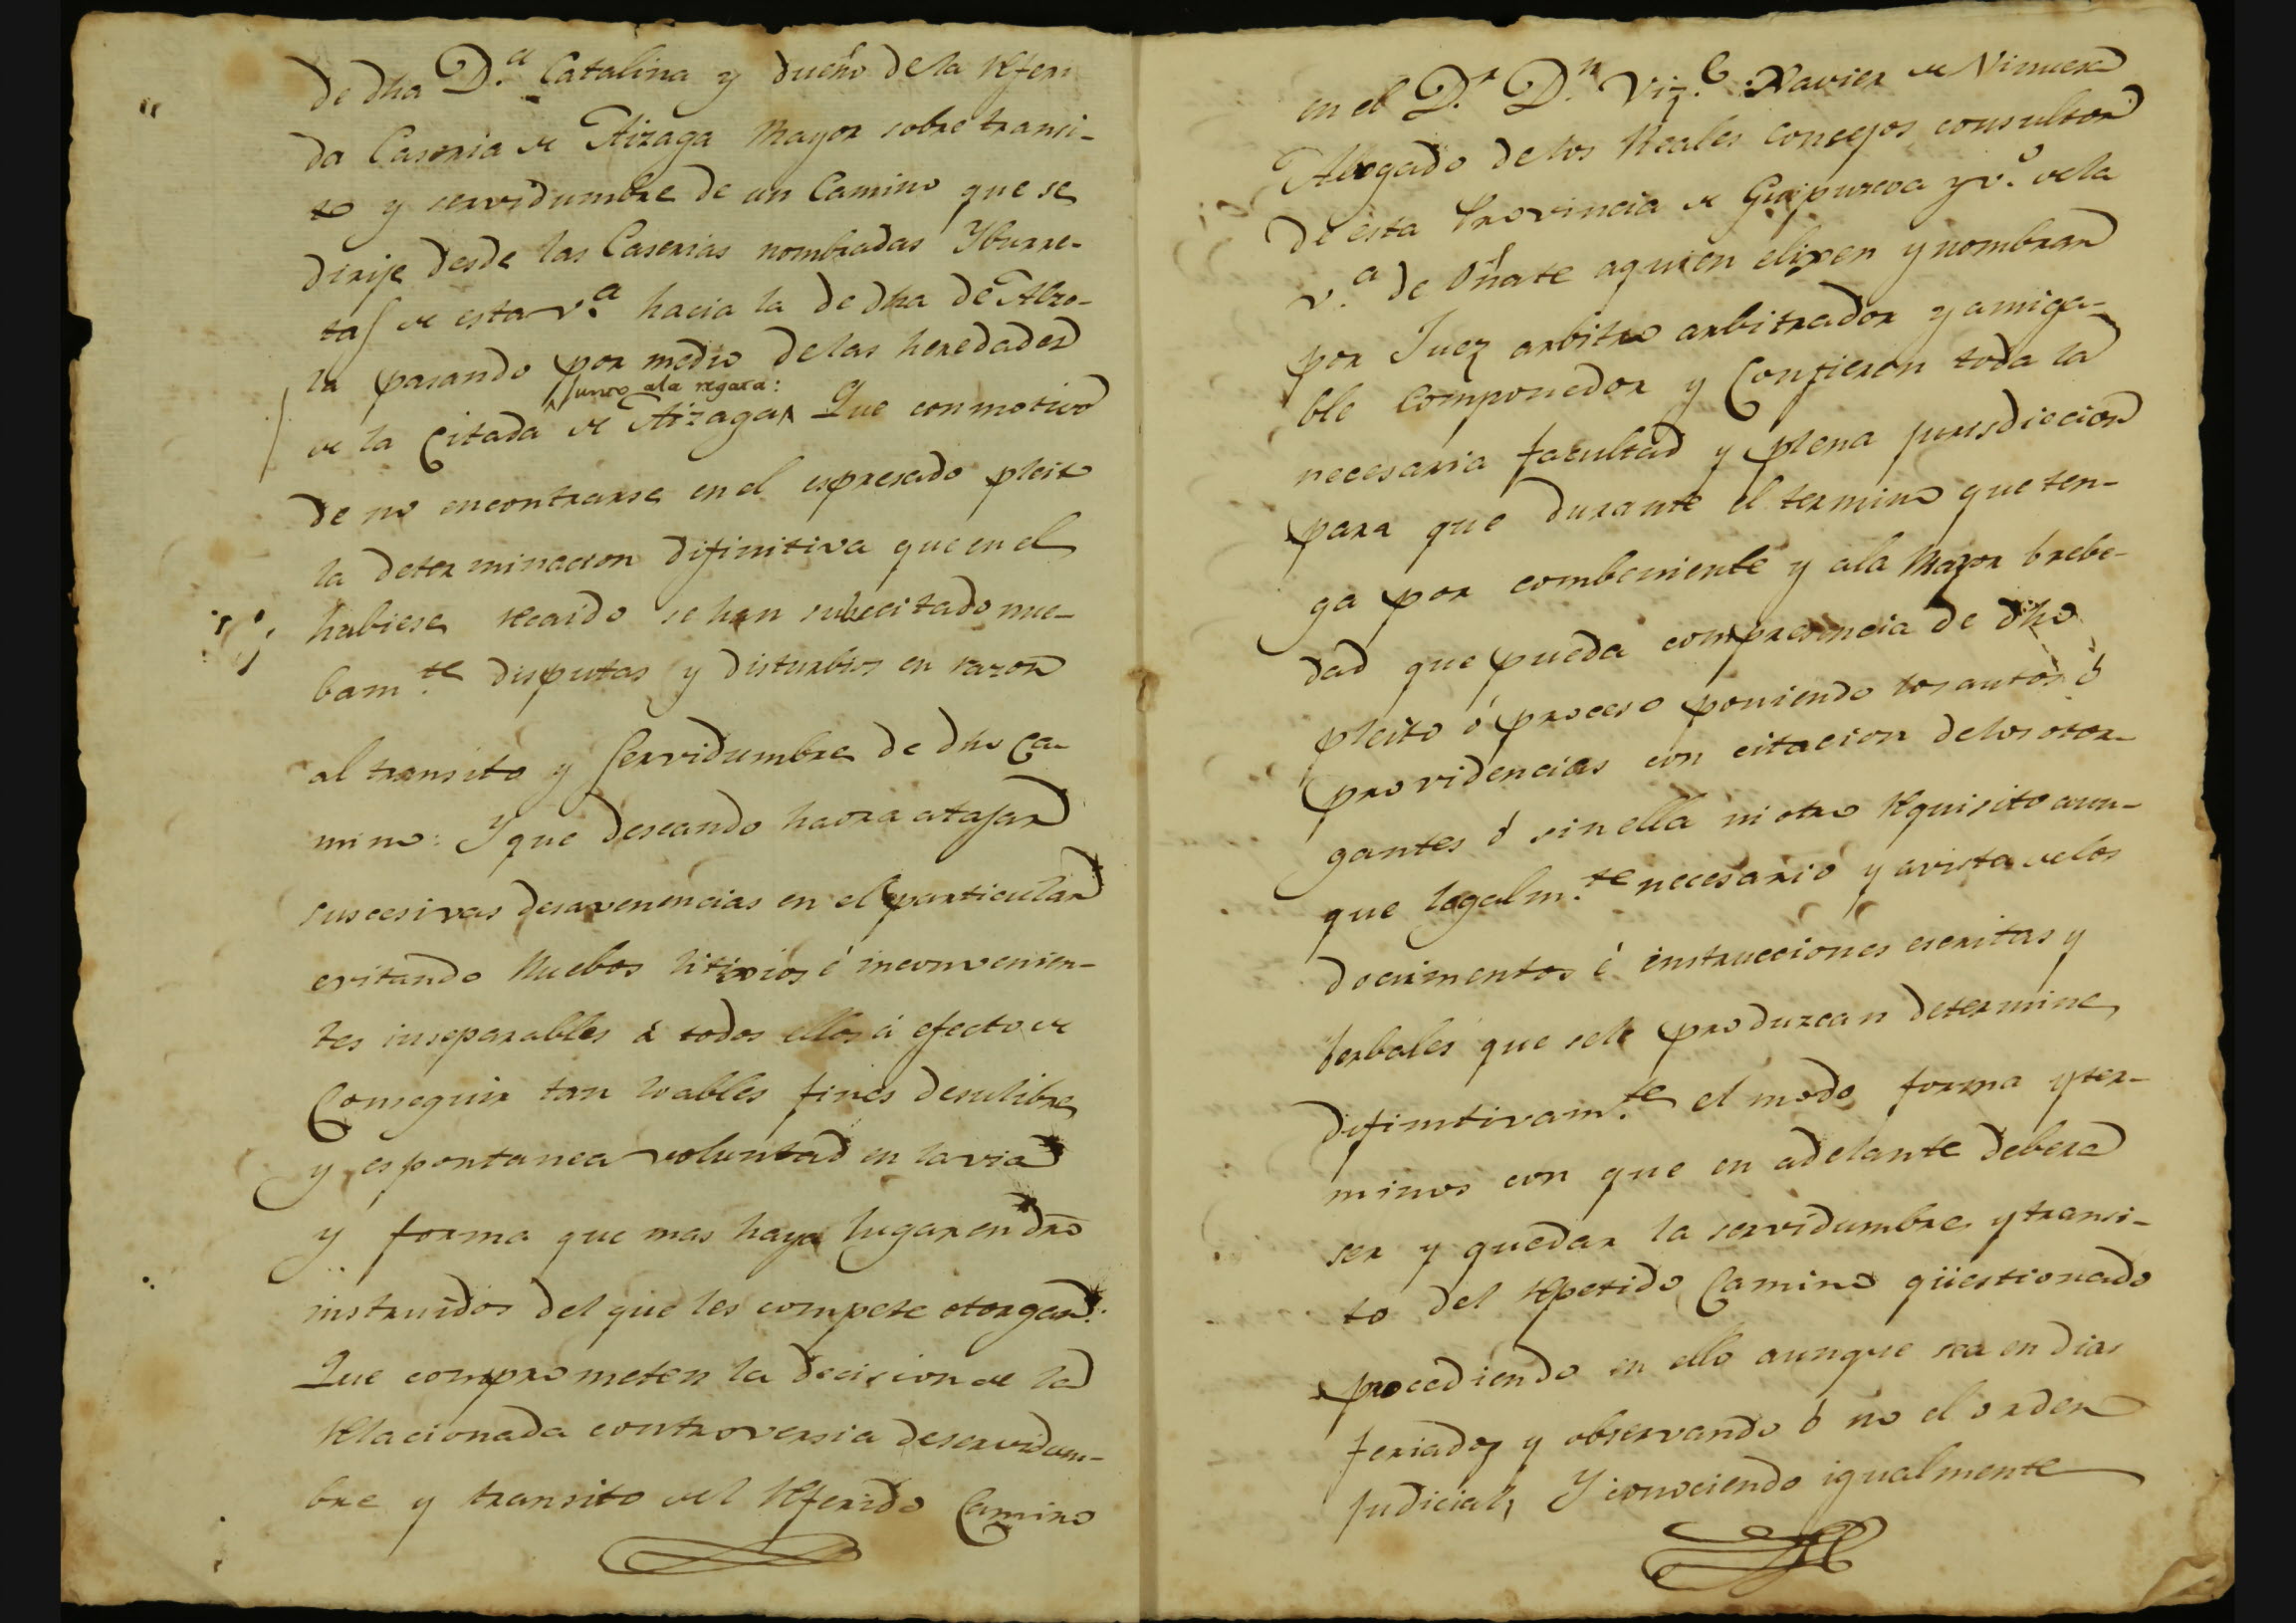 de dha D.ª Catalina y dueño de la Referi
da Caseria de Aizaga mayor sobre transi-
to y servidumbre de un Camino que se
dirije desde las Caserias nombradas Yburre-
tas de esta v.ª hacia la de dha de
la pasando por medio de las heredades
Junto ala regata:
de la Citada de Aizaga, Que con motivo
de no encontrarse en el espresado pleito
la determinacion difinitiva que en el
hubiese recaido se han suscitado nue-
bam.te disputas y disturbios en razon
al transito y servidumbre de dho Ca-
mino: Y que deseando haora atajar
suscesivas desavenencias en el particular
evitando Nuebos litixios é inconvenien-
tes inseparables á todos ellos á efecto de
Conseguir tan loables fines desu libre
y espontanea voluntad en la via
y forma que mas haya lugar en dro
instruidos del que les compete otorgan:
Que comprometen la decision de la
Relacionada controversia deservidum-
bre y transito del Referido Camino
en el D.r D.n Viz.e Xavier de Vinuesa
Abogado delos Reales Consejos consultor
de esta Provincia de Guipuzcoa y v.o dela
v.ª de Oñate aquien elixen y nombran
por Juez arbitro arbitrador y amiga-
ble Componedor y Confieren toda la
necesaria facultad y plena jurisdiccion
para que durante el termino que ten-
ga por combeniente y ala mayor brebe-
dad que pueda compresencia de dho
pleito ó proceso poniendo los autos ó
providencias con citacion delos otor-
gantes ó sin ella ni otro Requisito aun-
que legalm.te necesario y avista delos
documentos é instrucciones escritas y
berbales que sele produzcan determine
difinitivam.te el modo forma y ter-
minos con que en adelante debera
ser y quedar la servidumbre y transi-
to del Repetido Camino qüestionado
procediendo en ello aunque sea en dias
feriados y observando ó no el orden
Judicial, Y conociendo igualmente